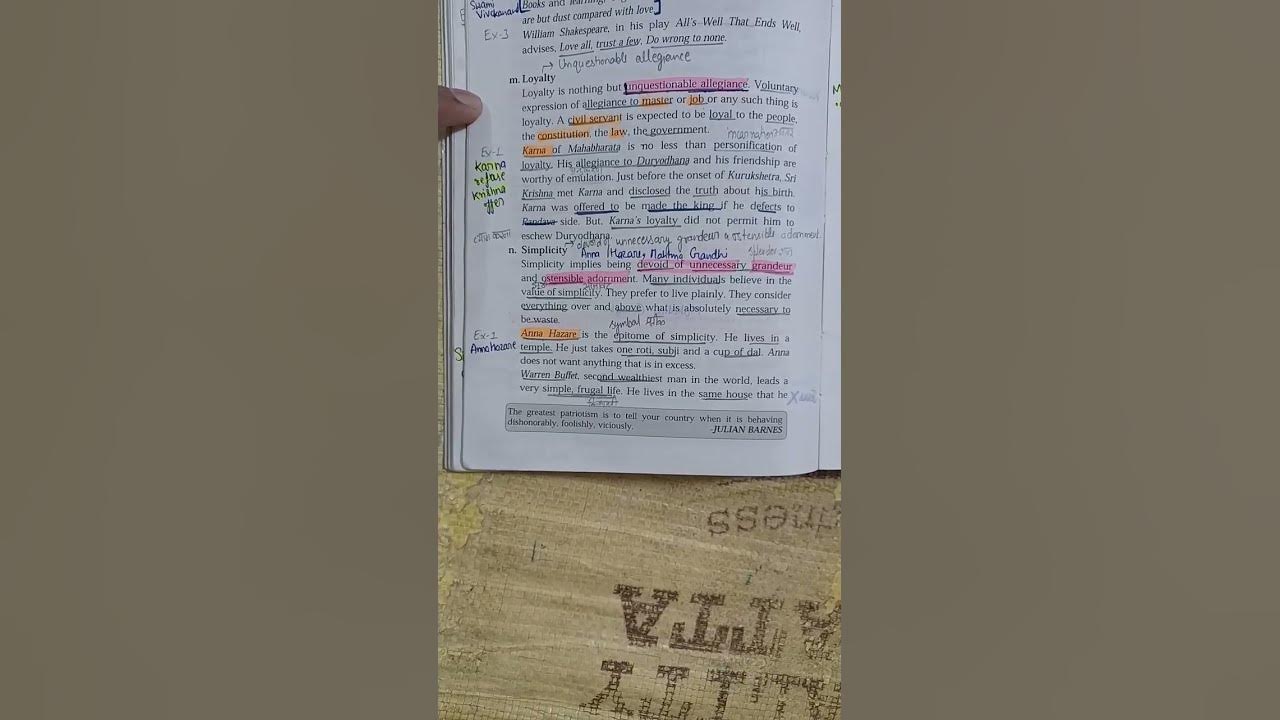 Swami
Vivekanand
Books and learning
are but dust compared with love
Ex-3
William Shakespeare, in his play All's Well That Ends Well,
advises, Love all, trust a few, Do wrong to none.
→ Unquestionable allegiance
m. Loyalty
Loyalty is nothing but unquestionable allegiance. Voluntary
expression of allegiance to master or job or any such thing is
loyalty. A civil servant is expected to be loyal to the people,
the constitution, the law, the government.
Ex-1
Karna
refuse
Krishna
offer
Karna of Mahabharata is no less than personification of
loyalty. His allegiance to Duryodhana and his friendship are
worthy of emulation. Just before the onset of Kurukshetra, Sri
Krishna met Karna and disclosed the truth about his birth.
Karna was offered to be made the king if he defects to
Pandava side. But, Karna's loyalty did not permit him to
eschew Duryodhana.
→ devoid of unnecessary grandeur & ostensible adornment.
n. Simplicity
Anna Hazare, Mahtma Gandhi
Simplicity implies being devoid of unnecessary grandeur
and ostensible adornment. Many individuals believe in the
value of simplicity. They prefer to live plainly. They consider
everything over and above what is absolutely necessary to
be waste.
symbol
Ex-1
Anna Hazare
Anna Hazare is the epitome of simplicity. He lives in a
temple. He just takes one roti, subji and a cup of dal. Anna
does not want anything that is in excess.
Warren Buffet, second wealthiest man in the world, leads a
very simple, frugal life. He lives in the same house that he
The greatest patriotism is to tell your country when it is behaving
dishonorably, foolishly, viciously.
-JULIAN BARNES